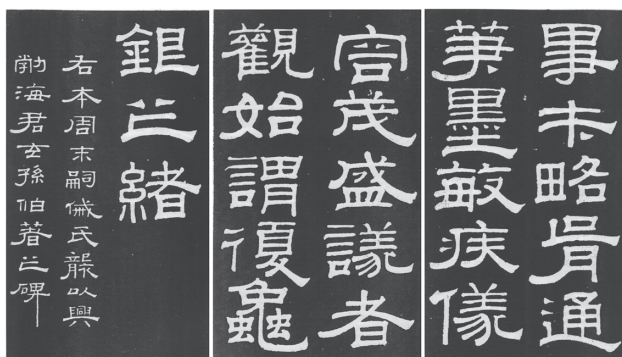 才略通
茟墨敏疾儀
容茂盛議者
觀始謂復龜
銀之緒
右本周末嗣氏以興
勃海君玄孫伯著之碑